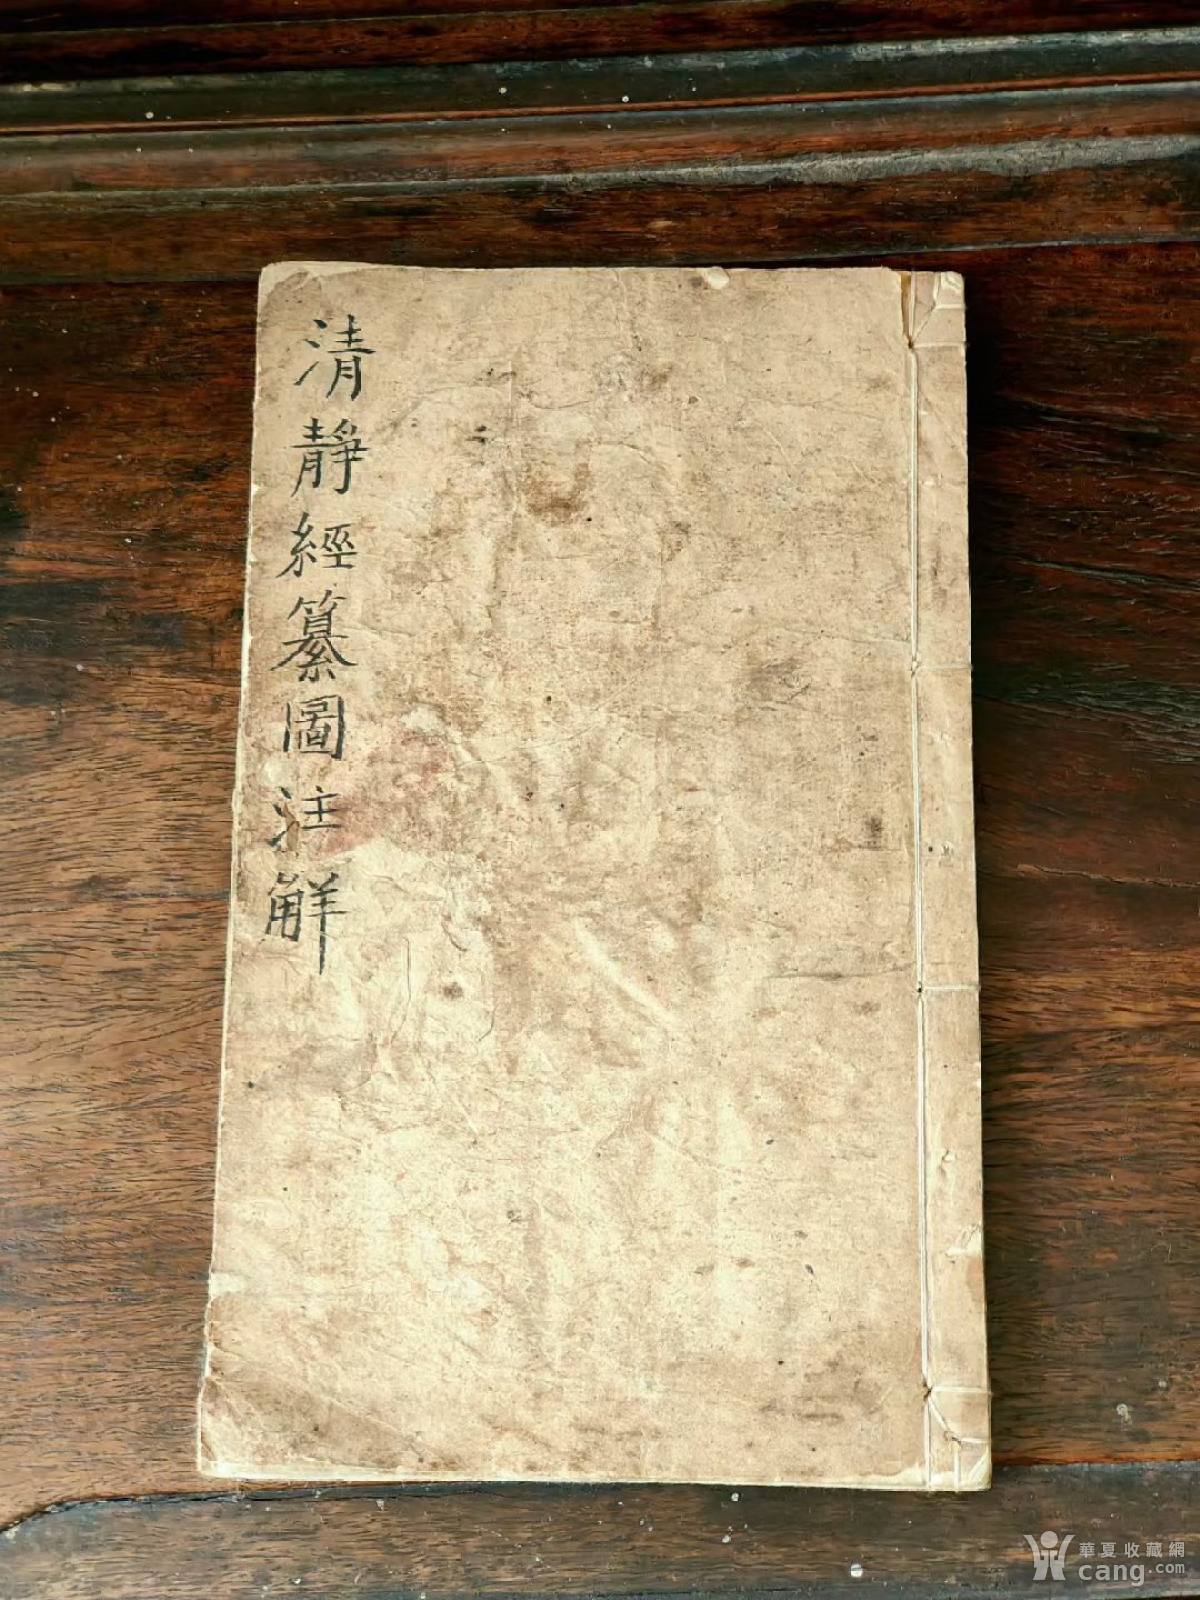 清靜經纂圖注觧
華夏收藏網
cang.com